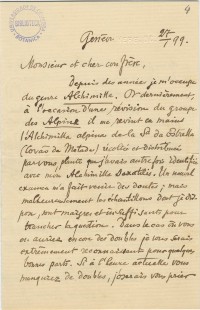 4
BIBLIOTECA
Genève 27/1 99.
Monsieur et cher confrère,
Depuis des années je m'occupe
du genre Alchimilla. Or dernièrement,
à l'occasion d'une révision du groupe
des Alpinae il me revint en mains
l'Alchimilla alpina de la Sa da Estrella
récoltés et distribués
par vous plante que j'avais autrefois identifiée
avec mon Alchimilla saxatilis. Un nouvel
examen m'a fait venir des doutes; mais
malheureusement les échantillons dont je dis-
pose, sont maigres et insuffisants pour
trancher la question. Dans le cas où vous
en auriez encore des doubles je vous serais
extrêmement reconnaissant pour quelques
bonnes parts. Si à l'heure actuelle vous
manquez de doubles, j'oserais vous prier